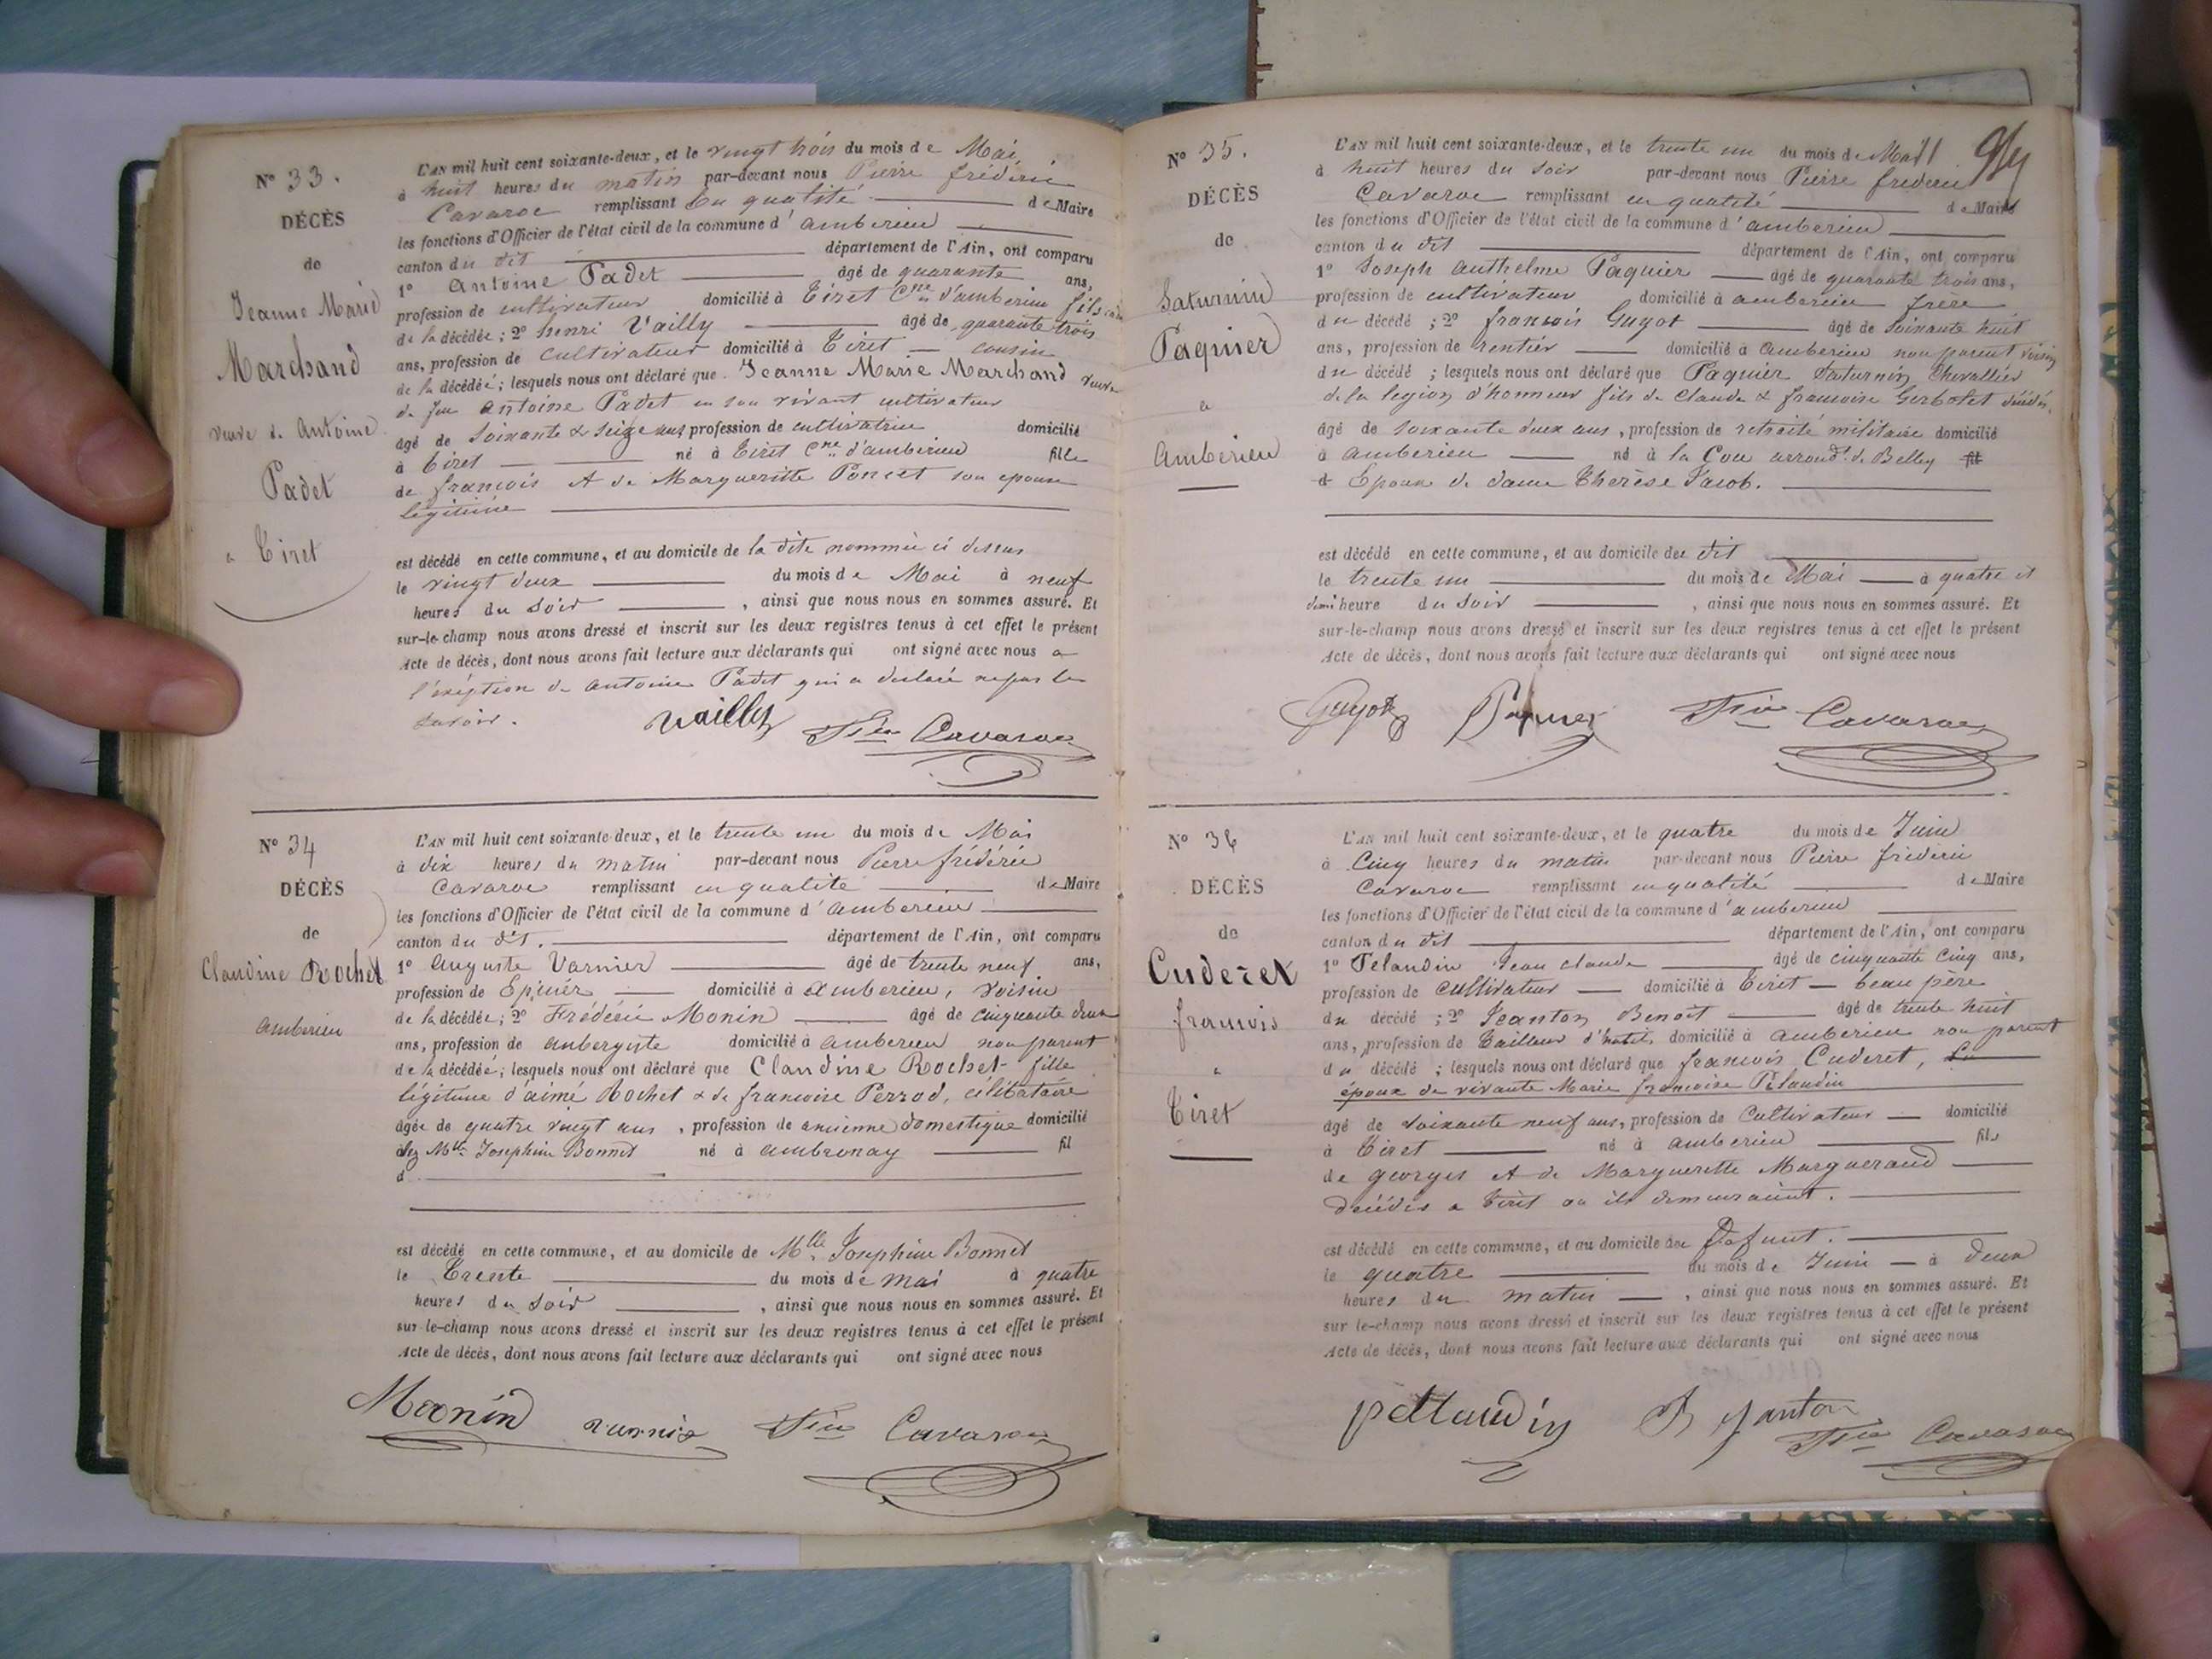 N° 33.
DÉCÈS
de
Jeanne Marie
Marchand
veuve de Antoine
Padet
a Tiret
L'AN mil huit cent soixante-deux, et le vingt trois du mois de Mai
à huit heures du matin par-devant nous Pierre frédéric
Cavaroc remplissant En qualité de Maire
les fonctions d'Officier de l'état civil de la commune d'amberieu
canton du dit département de l'Ain, ont comparu
1° Antoine Padet âgé de quarante ans,
profession de cultivateur domicilié à Tiret Cne d'amberieu fils
de la décédée; 2° henri Vailly âgé de quarante trois
ans, profession de Cultivateur domicilié à Tiret cousin
de la décédée; lesquels nous ont déclaré que Jeanne Marie Marchand veuve
de feu Antoine Padet en son vivant cultivateur
âgé de soixante & seize ans profession de cultivatrice domicilié
à Tiret né à Tiret Cne d'amberieu fille
de francois et de Margueritte Poncet son epouse
légitime
est décédé en cette commune, et au domicile de la dite nommée ci dessus
le vingt deux du mois de Mai à neuf
heures du soir, ainsi que nous nous en sommes assuré. Et
sur-le-champ nous avons dressé et inscrit sur les deux registres tenus à cet effet le présent
Acte de décès, dont nous avons fait lecture aux déclarants qui ont signé avec nous a
l'exéption de antoine Padet qui a declaré ne pas le
savoir.
Vailly Fric Cavaroc
N° 34
DÉCÈS
de
Claudine Rochet
amberieu
L'AN mil huit cent soixante-deux, et le trente un du mois de Mai
à dix heures du matin par-devant nous Pierre frédéric
Cavaroc remplissant en qualité de Maire
les fonctions d'Officier de l'état civil de la commune d'amberieu
canton du dit. département de l'Ain, ont comparu
1° Auguste Varnier âgé de trente neuf ans,
profession de Epicier domicilié à amberieu, voisin
de la décédée; 2° Frédéric Monin âgé de cinquante deux
ans, profession de aubergiste domicilié à amberieu non parent
de la décédée; lesquels nous ont déclaré que Claudine Rochet fille
légitime d'aimé Rochet & de francoise Perrod, célibataire
âgée de quatre vingt ans, profession de ancienne domestique domicilié
chez Mlle Josephine Bonnet né à ambronay fil
d
est décédé en cette commune, et au domicile de Mlle Josephine Bonnet
le Trente du mois de mai à quatre
heures du soir, ainsi que nous nous en sommes assuré. Et
sur-le-champ nous avons dressé et inscrit sur les deux registres tenus à cet effet le présent
Acte de décès, dont nous avons fait lecture aux déclarants qui ont signé avec nous
Monin Fric Cavaroc
N° 35.
DÉCÈS
de
Saturnin
Paquier
a
Amberieu
L'AN mil huit cent soixante-deux, et le trente un du mois de Mai
à huit heures du soir par-devant nous Pierre frederic
Cavaroc remplissant en qualité de Maire
les fonctions d'Officier de l'état civil de la commune d'amberieu
canton du dit département de l'Ain, ont comparu
1° Joseph Anthelme Paquier âgé de quarante trois ans,
profession de cultivateur domicilié à amberieu frere
du décédé; 2° francois Guyot âgé de soixante huit
ans, profession de rentier domicilié à amberieu non parent voisin
du décédé; lesquels nous ont déclaré que Paquier Saturnin Chevallier
de la legion d'honneur fils de Claude & francoise Gerbolet décédés,
âgé de soixante deux ans, profession de retraité militaire domicilié
à amberieu né à la Cou arrondt. de Belley fil
d Epoux de dame Thérèse Jacob.
est décédé en cette commune, et au domicile du dit
le trente un du mois de Mai à quatre et
demi heure du soir, ainsi que nous nous en sommes assuré. Et
sur-le-champ nous avons dressé et inscrit sur les deux registres tenus à cet effet le présent
Acte de décès, dont nous avons fait lecture aux déclarants qui ont signé avec nous
Guyot Paquier Fric Cavaroc
N° 36
DÉCÈS
de
Cuderet
francois
a
Tiret
L'AN mil huit cent soixante-deux, et le quatre du mois de Juin
à Cinq heures du matin par-devant nous Pierre frédéric
Cavaroc remplissant en qualité de Maire
les fonctions d'Officier de l'état civil de la commune d'amberieu
canton du dit département de l'Ain, ont comparu
1° Pelaudin Jean Claude âgé de cinquante cinq ans,
profession de cultivateur domicilié à Tiret beau père
du décédé; 2° Jeanton Benoit âgé de trente huit
ans, profession de Tailleur d'habit, domicilié à amberieu non parent
du décédé; lesquels nous ont déclaré que francois Cuderet,
époux de vivante Marie francoise Pelaudin
âgé de soixante neuf ans, profession de Cultivateur domicilié
à Tiret né à amberieu fils
de georges et de Marguerite Margueraud
décédés a Tiret ou ils demeuraient.
est décédé en cette commune, et au domicile du Defunt.
le quatre du mois de Juin à deux
heures du matin, ainsi que nous nous en sommes assuré. Et
sur-le-champ nous avons dressé et inscrit sur les deux registres tenus à cet effet le présent
Acte de décès, dont nous avons fait lecture aux déclarants qui ont signé avec nous
pellaudin B Janton Fric Cavaroc